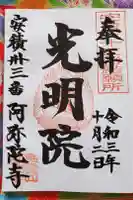 奉拝
令和三年
十月二日
光明院
安積卅三番阿弥陀寺